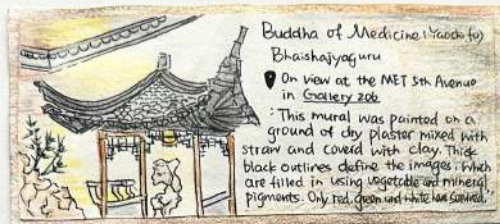 Buddha of Medicine (Yaoshi fo)
Bhaishajyaguru
On view at the MET 5th Avenue
in Gallery 206
: This mural was painted on a
ground of dry plaster mixed with
straw and coverd with clay. Thick
black outlines define the images, which
are filled in using vegetable and mineral
pigments. Only red, green and white have survived.